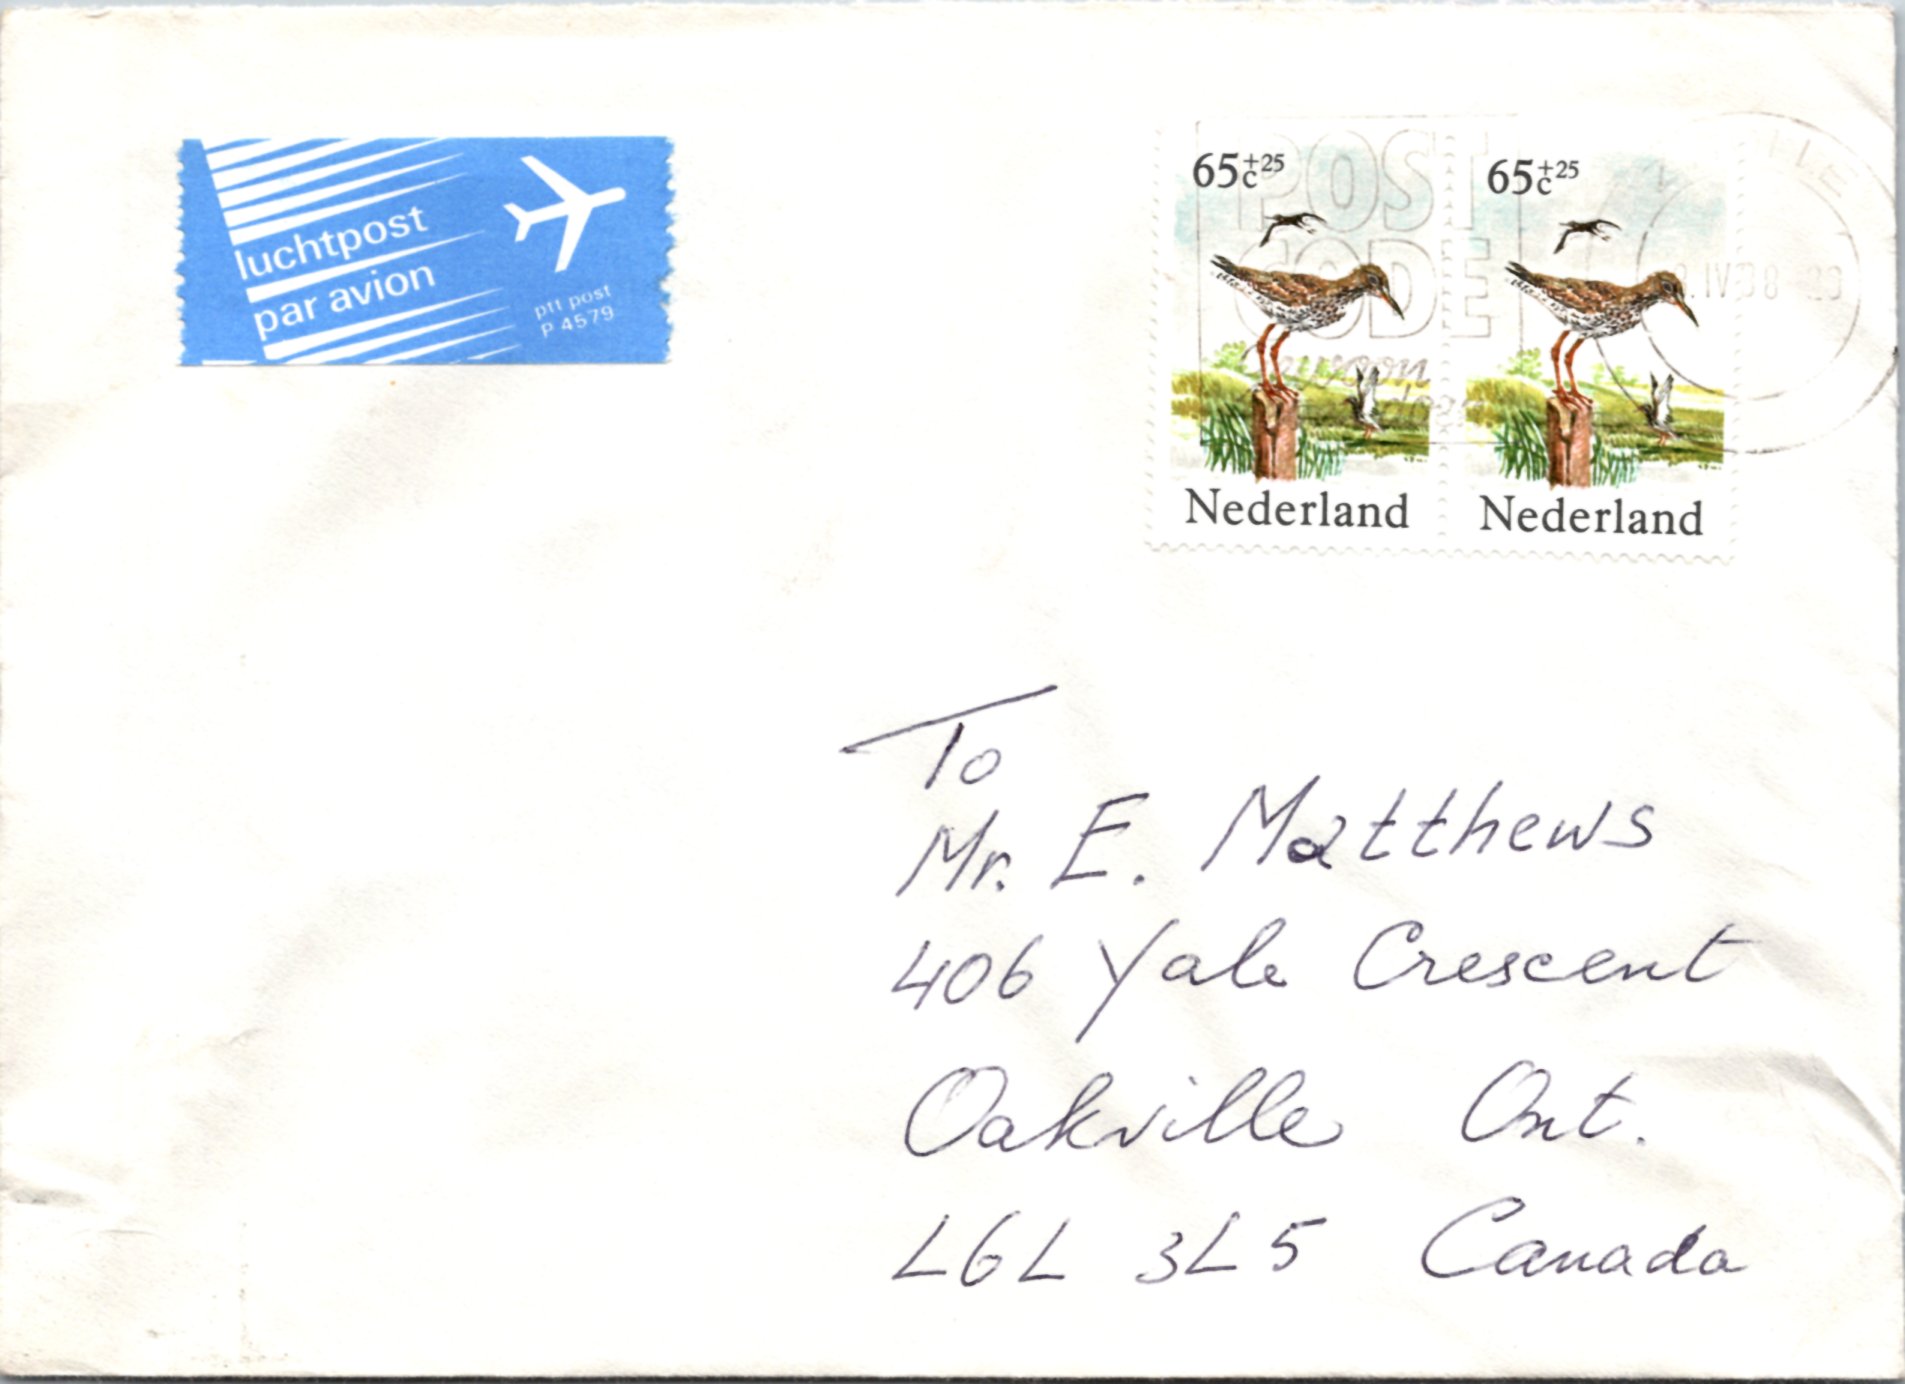 luchtpost
par avion
ptt post
P 4579
65 c +25
65 c +25
POST
CODE
gewoon
Nederland
Nederland
To
Mr. E. Matthews
406 Yale Crescent
Oakville Ont.
L6L 3L5 Canada